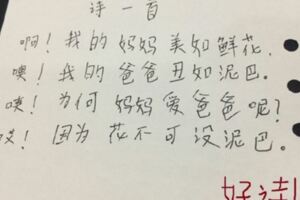 诗一首
啊！我的妈妈美如鲜花.
噢！我的爸爸丑如泥巴.
咦！为何妈妈爱爸爸呢？
哎！因为花不可没泥巴.
好诗！